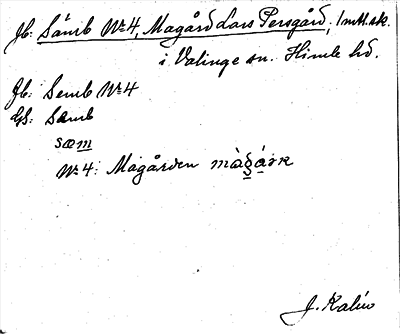 Jb: Sämb Nr 4, Magård Lars Persgård, 1 mtl. sk.
i Valinge sn. Himle hd.
Jb: Semb Nr 4
GS: Sæmb
sæm
Nr 4: Magården
J. Kalén